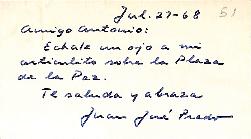 Jul. 27-68
51
Amigo Antonio:
Echale un ojo a mi
articulito sobre la Plaza
de la Paz.
Te saluda y abraza
Juan José Prado